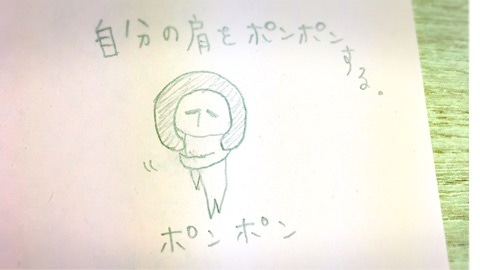 自分の肩をポンポンする。
ポンポン